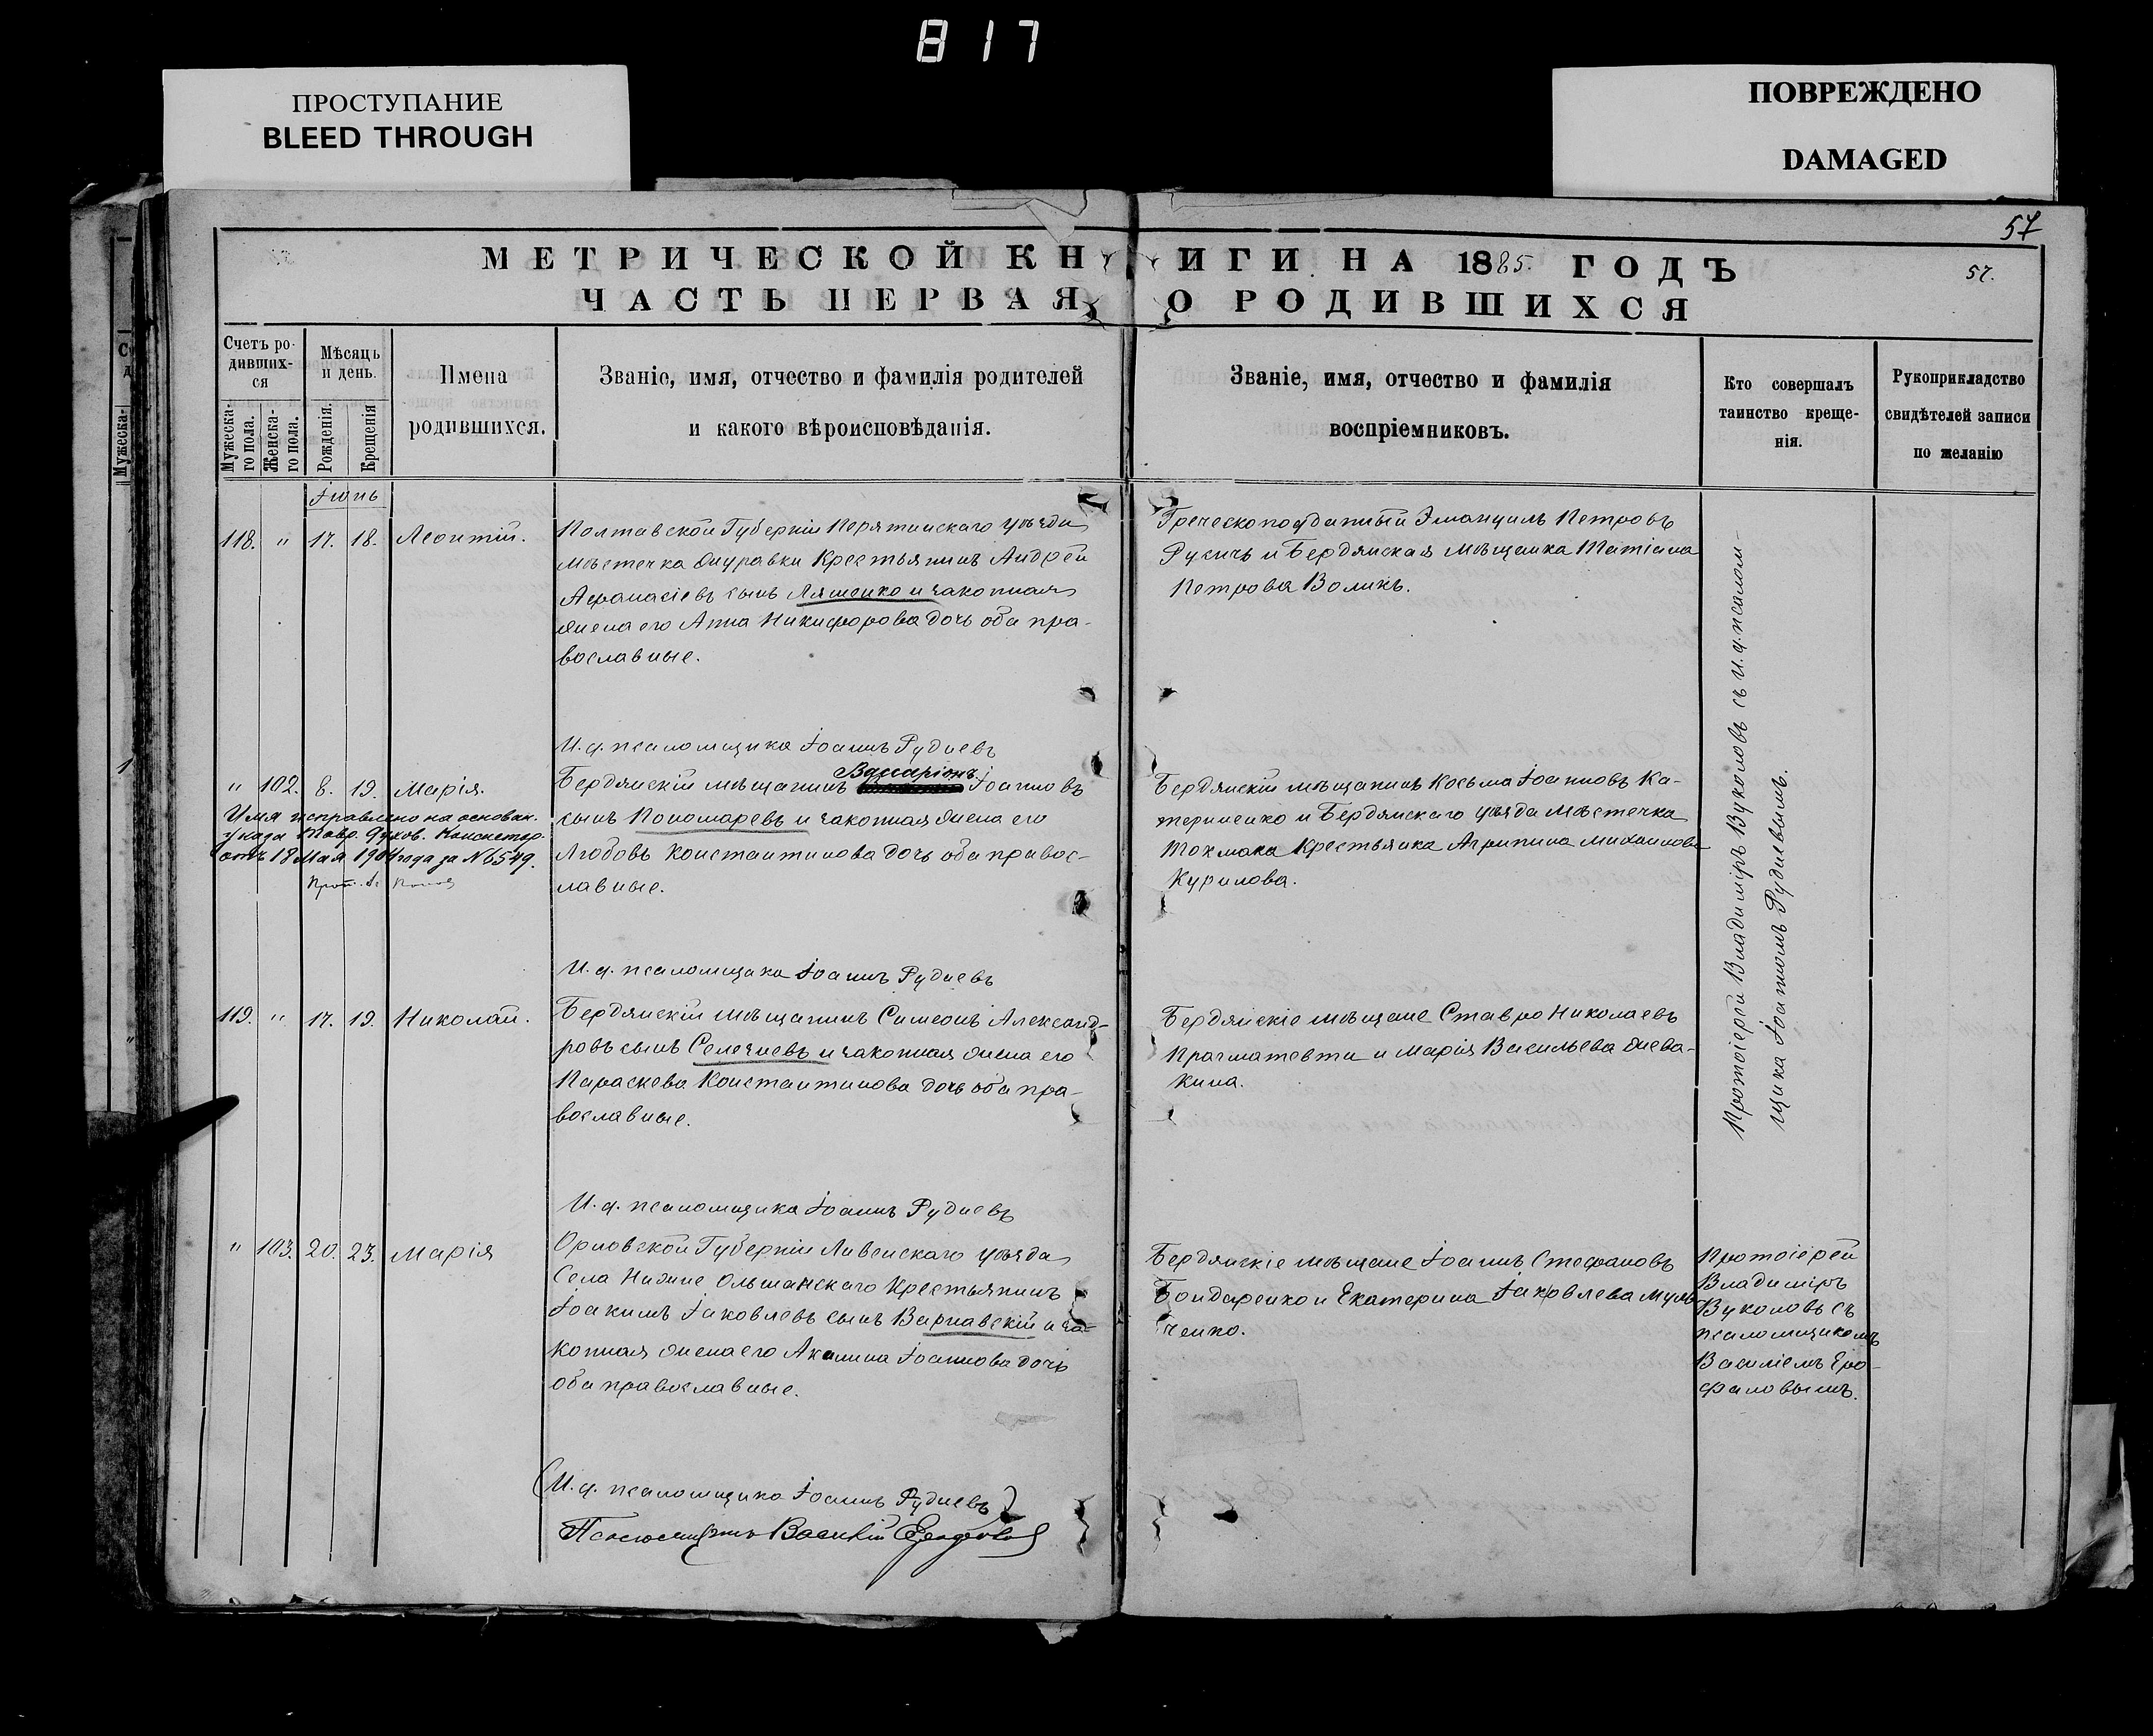 817
ПРОСТУПАНИЕ
BLEED THROUGH
ПОВРЕЖДЕНО
DAMAGED
57
МЕТРИЧЕСКОЙ КНИГИ НА 1885. ГОДЪ
57.
ЧАСТЬ ПЕРВАЯ О РОДИВШИХСЯ
Счетъ ро-
дивших-
ся
Мужеска-
го пола.
Женска-
го пола.
Мѣсяцъ
и день.
Рожденія.
Крещенія
Имена
родившихся.
Званіе, имя, отчество и фамилія родителей
и какого вѣроисповѣданія.
Званіе, имя, отчество и фамилія
воспріемниковъ.
Кто совершалъ
таинство креще-
нія.
Рукоприкладство
свидѣтелей записи
по желанію
Іюнь
118. " 17. 18. Леонтій.
Полтавской Губерніи Пирятинскаго уѣзда
мѣстечка Журавки Крестьянинъ Андрей
Афанасіевъ сынъ Ляшенко и законная
жена его Анна Никифорова дочь оба пра-
вославные.
Греческоподданный Эмануилъ Петровъ
и Бердянская мѣщанка Татіана
Петрова Воликъ.
И. д. псаломщика Іоаннъ Рудневъ
" 102. 8. 19. Марія.
Имя исправлено на основан.
указа Тавр. Духов. Консистор.
отъ 18 Мая 1904 года за N 6549.
Бердянскій мѣщанинъ Виссаріонъ Іоанновъ
сынъ Пономаревъ и законная жена его
Любовь Константинова дочь оба правос-
лавные.
Бердянскій мѣщанинъ Косьма Іоанновъ Ка-
териненко и Бердянскаго уѣзда мѣстечка
Токмака Крестьянка Агрипина Михаилова
Курилова.
И. д. псаломщика Іоаннъ Рудневъ
119. " 17. 19. Николай.
Бердянскій мѣщанинъ Симеонъ Александ-
ровъ сынъ Селезневъ и законная жена его
Параскева Константинова дочь оба пра-
вославные.
Бердянскіе мѣщане Ставро Николаевъ
Прагматевти и Марія Васильева Жева-
кина.
Протоіерей Владиміръ Вуколовъ съ и. д. псалом-
щика Іоанномъ Рудневымъ.
И. д. псаломщика Іоаннъ Рудневъ
" 103. 20. 23. Марія
Орловской Губерніи Ливенскаго уѣзда
Села Нижне Ольшанскаго Крестьянинъ
Іоакимъ Іаковлевъ сынъ Варнавскій и за-
конная жена его Акилина Іоаннова дочь
оба православные.
Бердянскіе мѣщане Іоаннъ Стефановъ
Бондаренко и Екатерина Іаковлева
ченко.
Протоіерей
Владиміръ
Вуколовъ съ
псаломщикомъ
Василіемъ Еро-
фаловымъ.
И. д. псаломщика Іоаннъ Рудневъ
Псаломщикъ Василій